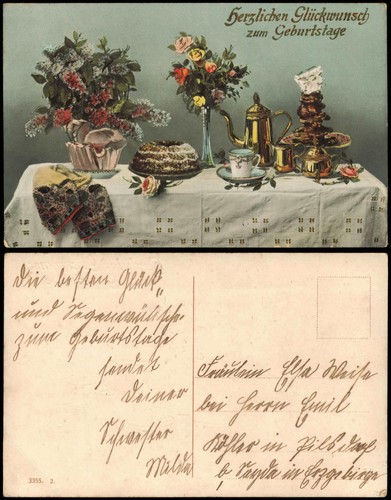 Herzlichen Glückwunsch
zum Geburtstage
Die besten Glück
und Segenwünsche
zum Geburtstage
sendet
Deiner
Schwester
Milda
3355. 2.
Fräulein Elsa Weise
bei Herrn Emil
Köhler in Pilsdorf
b. Sayda in Erzgebirge